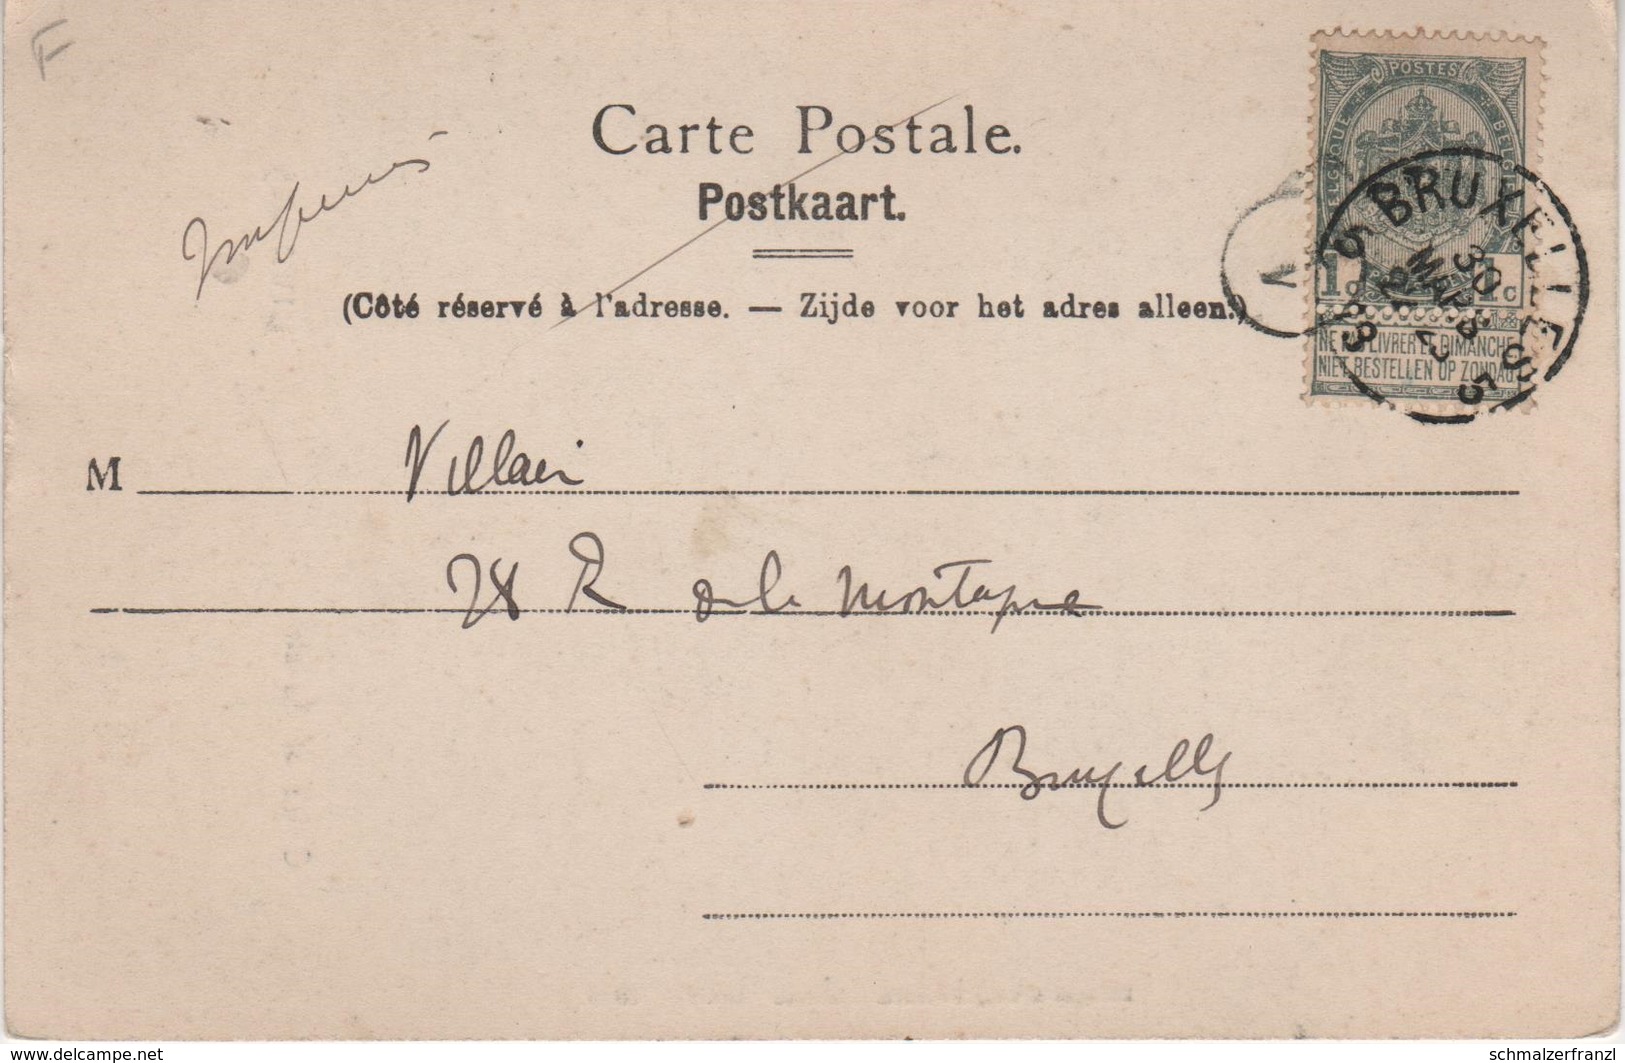 F
Carte Postale.
Imprimés
Postkaart.
(Côté réservé à l'adresse. — Zijde voor het adres alleen.)
POSTES
BELGIQUE
BELGIE
1c 1c
NE PAS LIVRER LE DIMANCHE
NIET BESTELLEN OP ZONDAG
BRUXELLES 5
30 MARS
V
M Villain
28 R de la Montagne
Bruxelles
www.delcampe.net
schmalzerfranzl